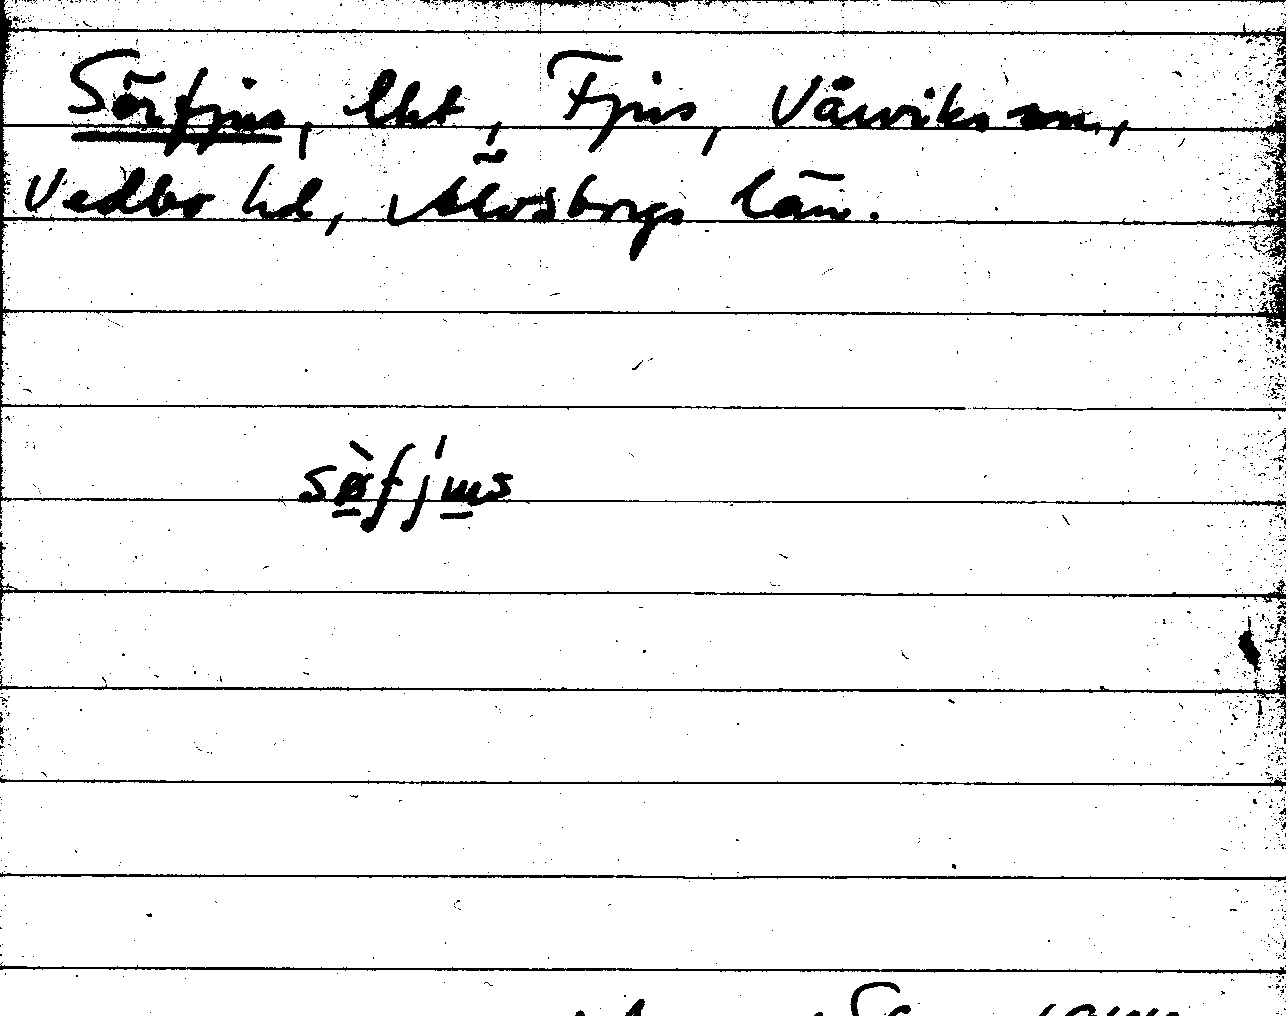 Sörfjus, lht, Fjus, Vårviks sn,
Vedbo hd, Älvsborgs län.